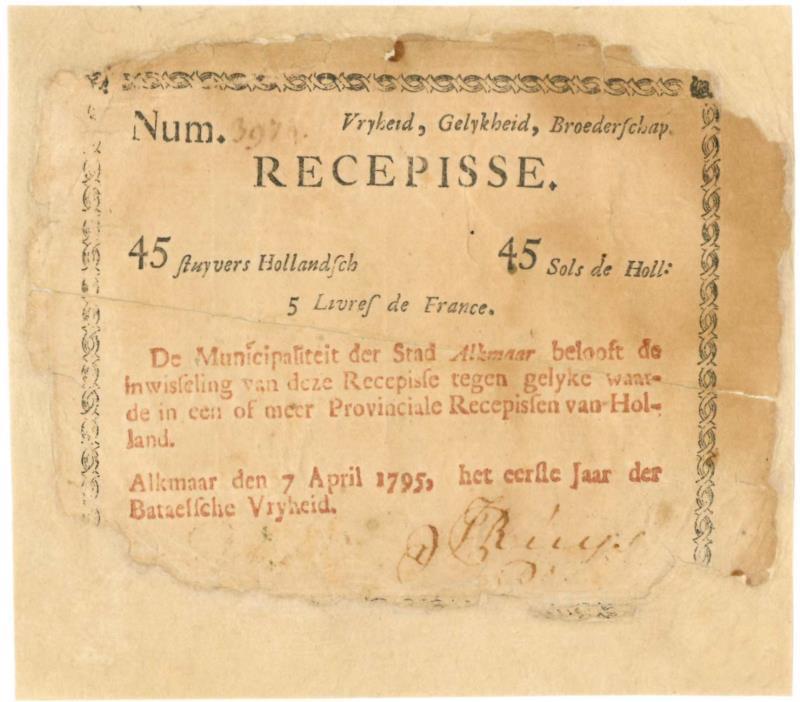 Num. 397 Vryheid, Gelykheid, Broederſchap.
RECEPISSE.
45 ſtuyvers Hollandſch 45 Sols de Holl:
5 Livreſ de France.
De Municipaliteit der Stad Alkmaar belooft de
inwiſſeling van deze Recepiſſe tegen gelyke waar-
de in een of meer Provinciale Recepiſſen van Hol-
land.
Alkmaar den 7 April 1795, het eerſte Jaar der
Bataefſche Vryheid.